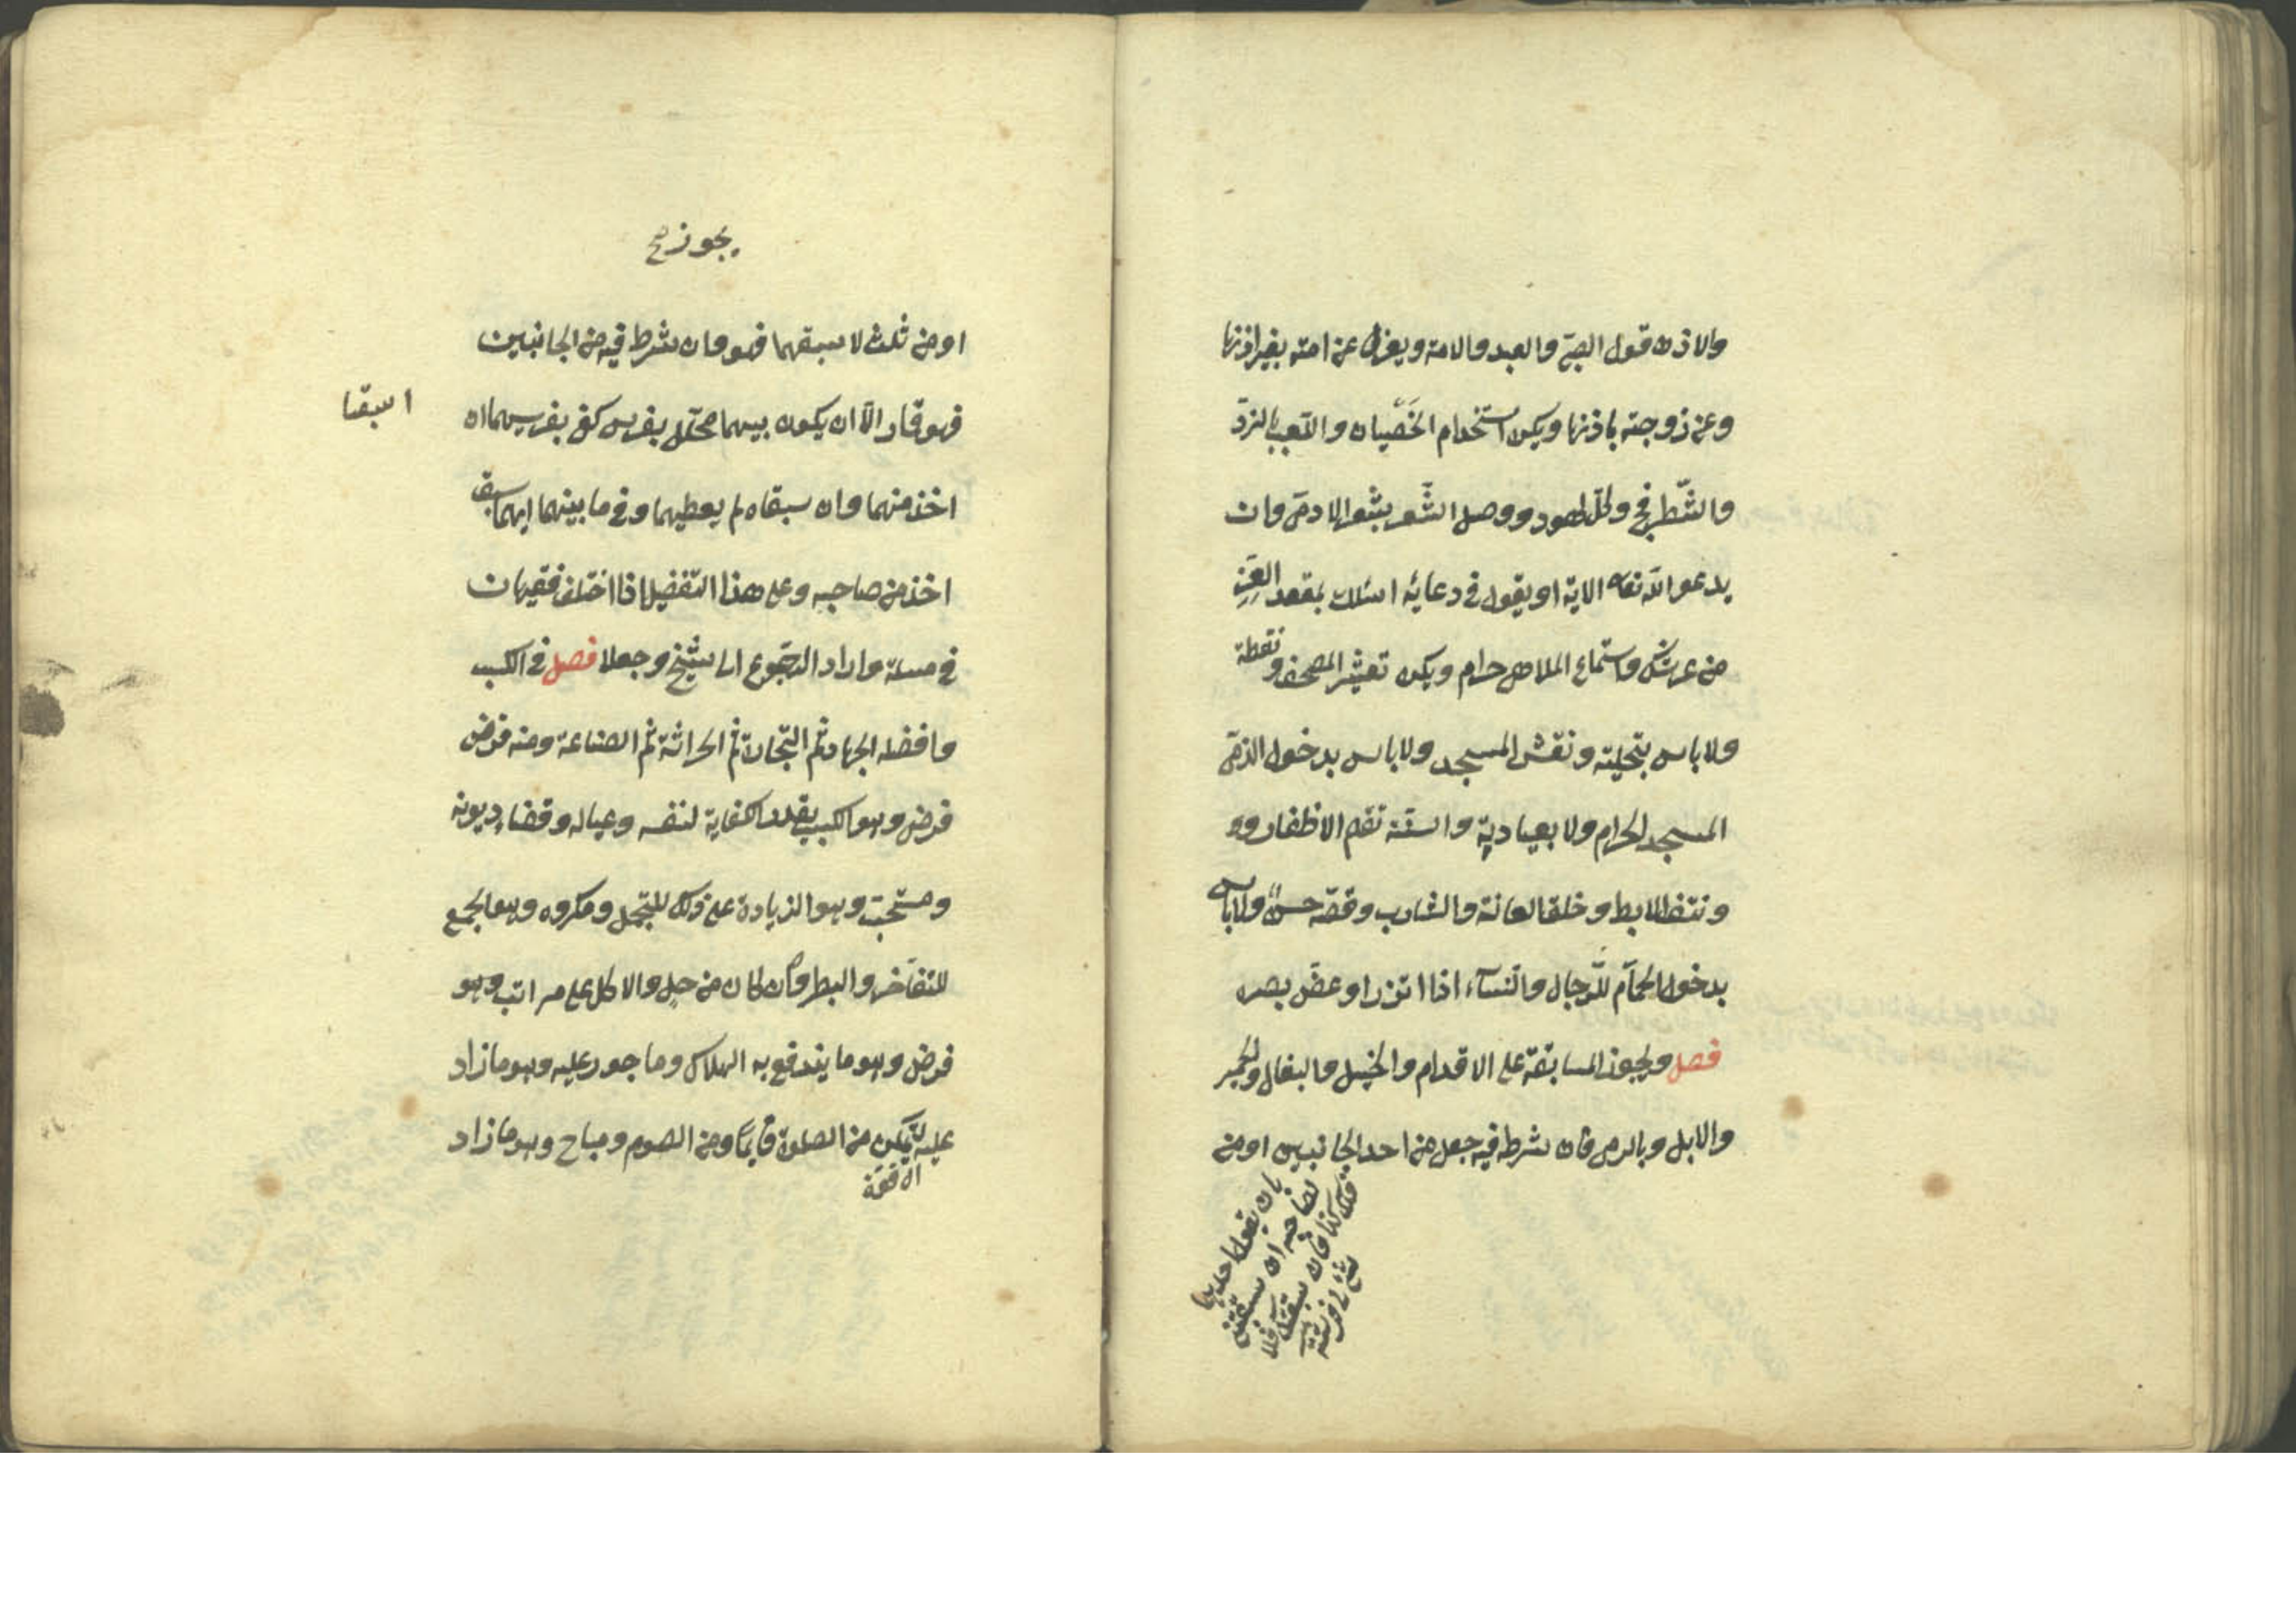 والاذن قول الصبي والعبد والامة ويعزل عن امته بغير اذنها
وعن زوجته باذنها ويكره استخدام الخصيان واللعب بالنرد
والشطرنج وكل لهو ووصل الشعر بشعر الادمي وان
يدعو الله تعالى الاية او يقول في دعايه اسئلك بمقعد العز
من عرشك واستماع الملاهي حرام ويكره تعشير المصحف ونقطه
ولا باس بتحليته ونقش المسجد ولا باس بدخول الذمي
المسجد الحرام ولا بعيادته والسنة تقليم الاظفار و
ونتف الابط وحلق العانة والشارب وقصه حسن ولا باس
بدخول الحمام للرجال والنساء اذا اتزر او غض بصره
فصل ويجوز المسابقة على الاقدام والخيل والبغال والحمير
والابل وبالرمي فان شرط فيه جعل من احد الجانبين او من
بان يقول احدهما
لصاحبه ان سبقتني
فلك كذا وان سبقتك فلا
يجوز صح
او من ثلث لاسبقهما فهو وان شرط فيه من الجانبين
فهو قمار الا ان يكون بينهما محلل بفرس كفؤ بفرسيهما ان
اسبقا
اخذ منهما وان سبقاه لم يعطيهما وفي ما بينهما ايهما سبق
اخذ من صاحبه وعلى هذا التفضيل اذا اختلف فقيهان
في مسئلة وارادا الرجوع الى شيخ وجعلا فصل في الكسب
وافضله الجهاد ثم التجارة ثم الحراثة ثم الصناعة ومنه فرض
فرض وهو الكسب بقدر الكفاية لنفسه وعياله وقضاء ديونه
ومستحب وهو الزيادة على ذلك للتجمل ومكروه وهو الجمع
للتفاخر والبطر وان كان من حل والاكل على مراتب وهو
فرض وهو ما يندفع به الهلاك وماجور عليه وهو مازاد
عليه ليمكن من الصلوة قايما ومن الصوم ومباح وهو مازاد